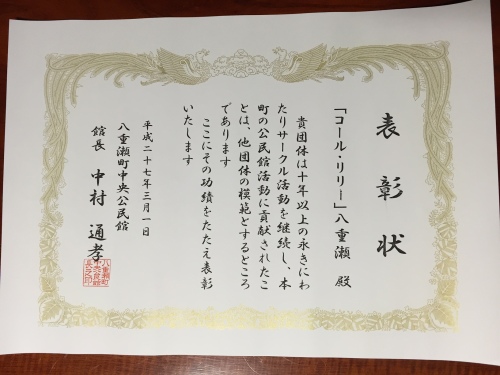 表彰状
「コール・リリー」八重瀬 殿
貴団体は十年以上の永きにわ
たりサークル活動を継続し、本
町の公民館活動に貢献されたこ
とは、他団体の模範とするところ
であります
ここにその功績をたたえ表彰
いたします
平成二十七年三月一日
八重瀬町中央公民館
館長 中村 通孝
八重瀬町
中央公民館
長之印